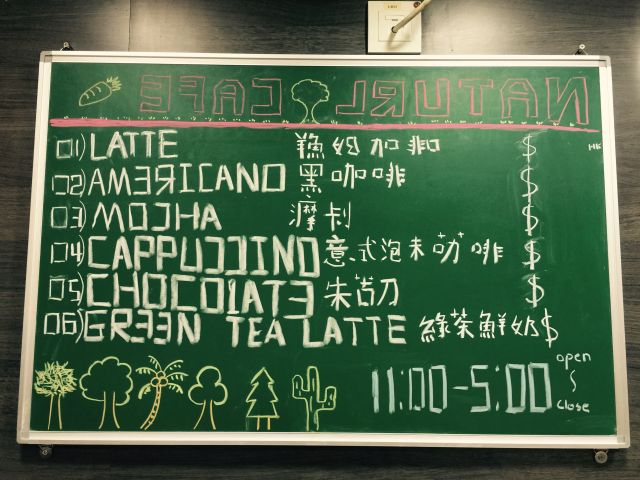 NATURL CAFE
HK
01) LATTE 奶加 $
02) AMERICANO 黑咖啡 $
03) MOCHA 卡 $
04) CAPPUCCINO 意式泡未 啡 $
05) CHOCOLATE 朱苦刀 $
06) GREEN TEA LATTE 綠茶鮮奶 $
open
11:00-5:00 ~
close